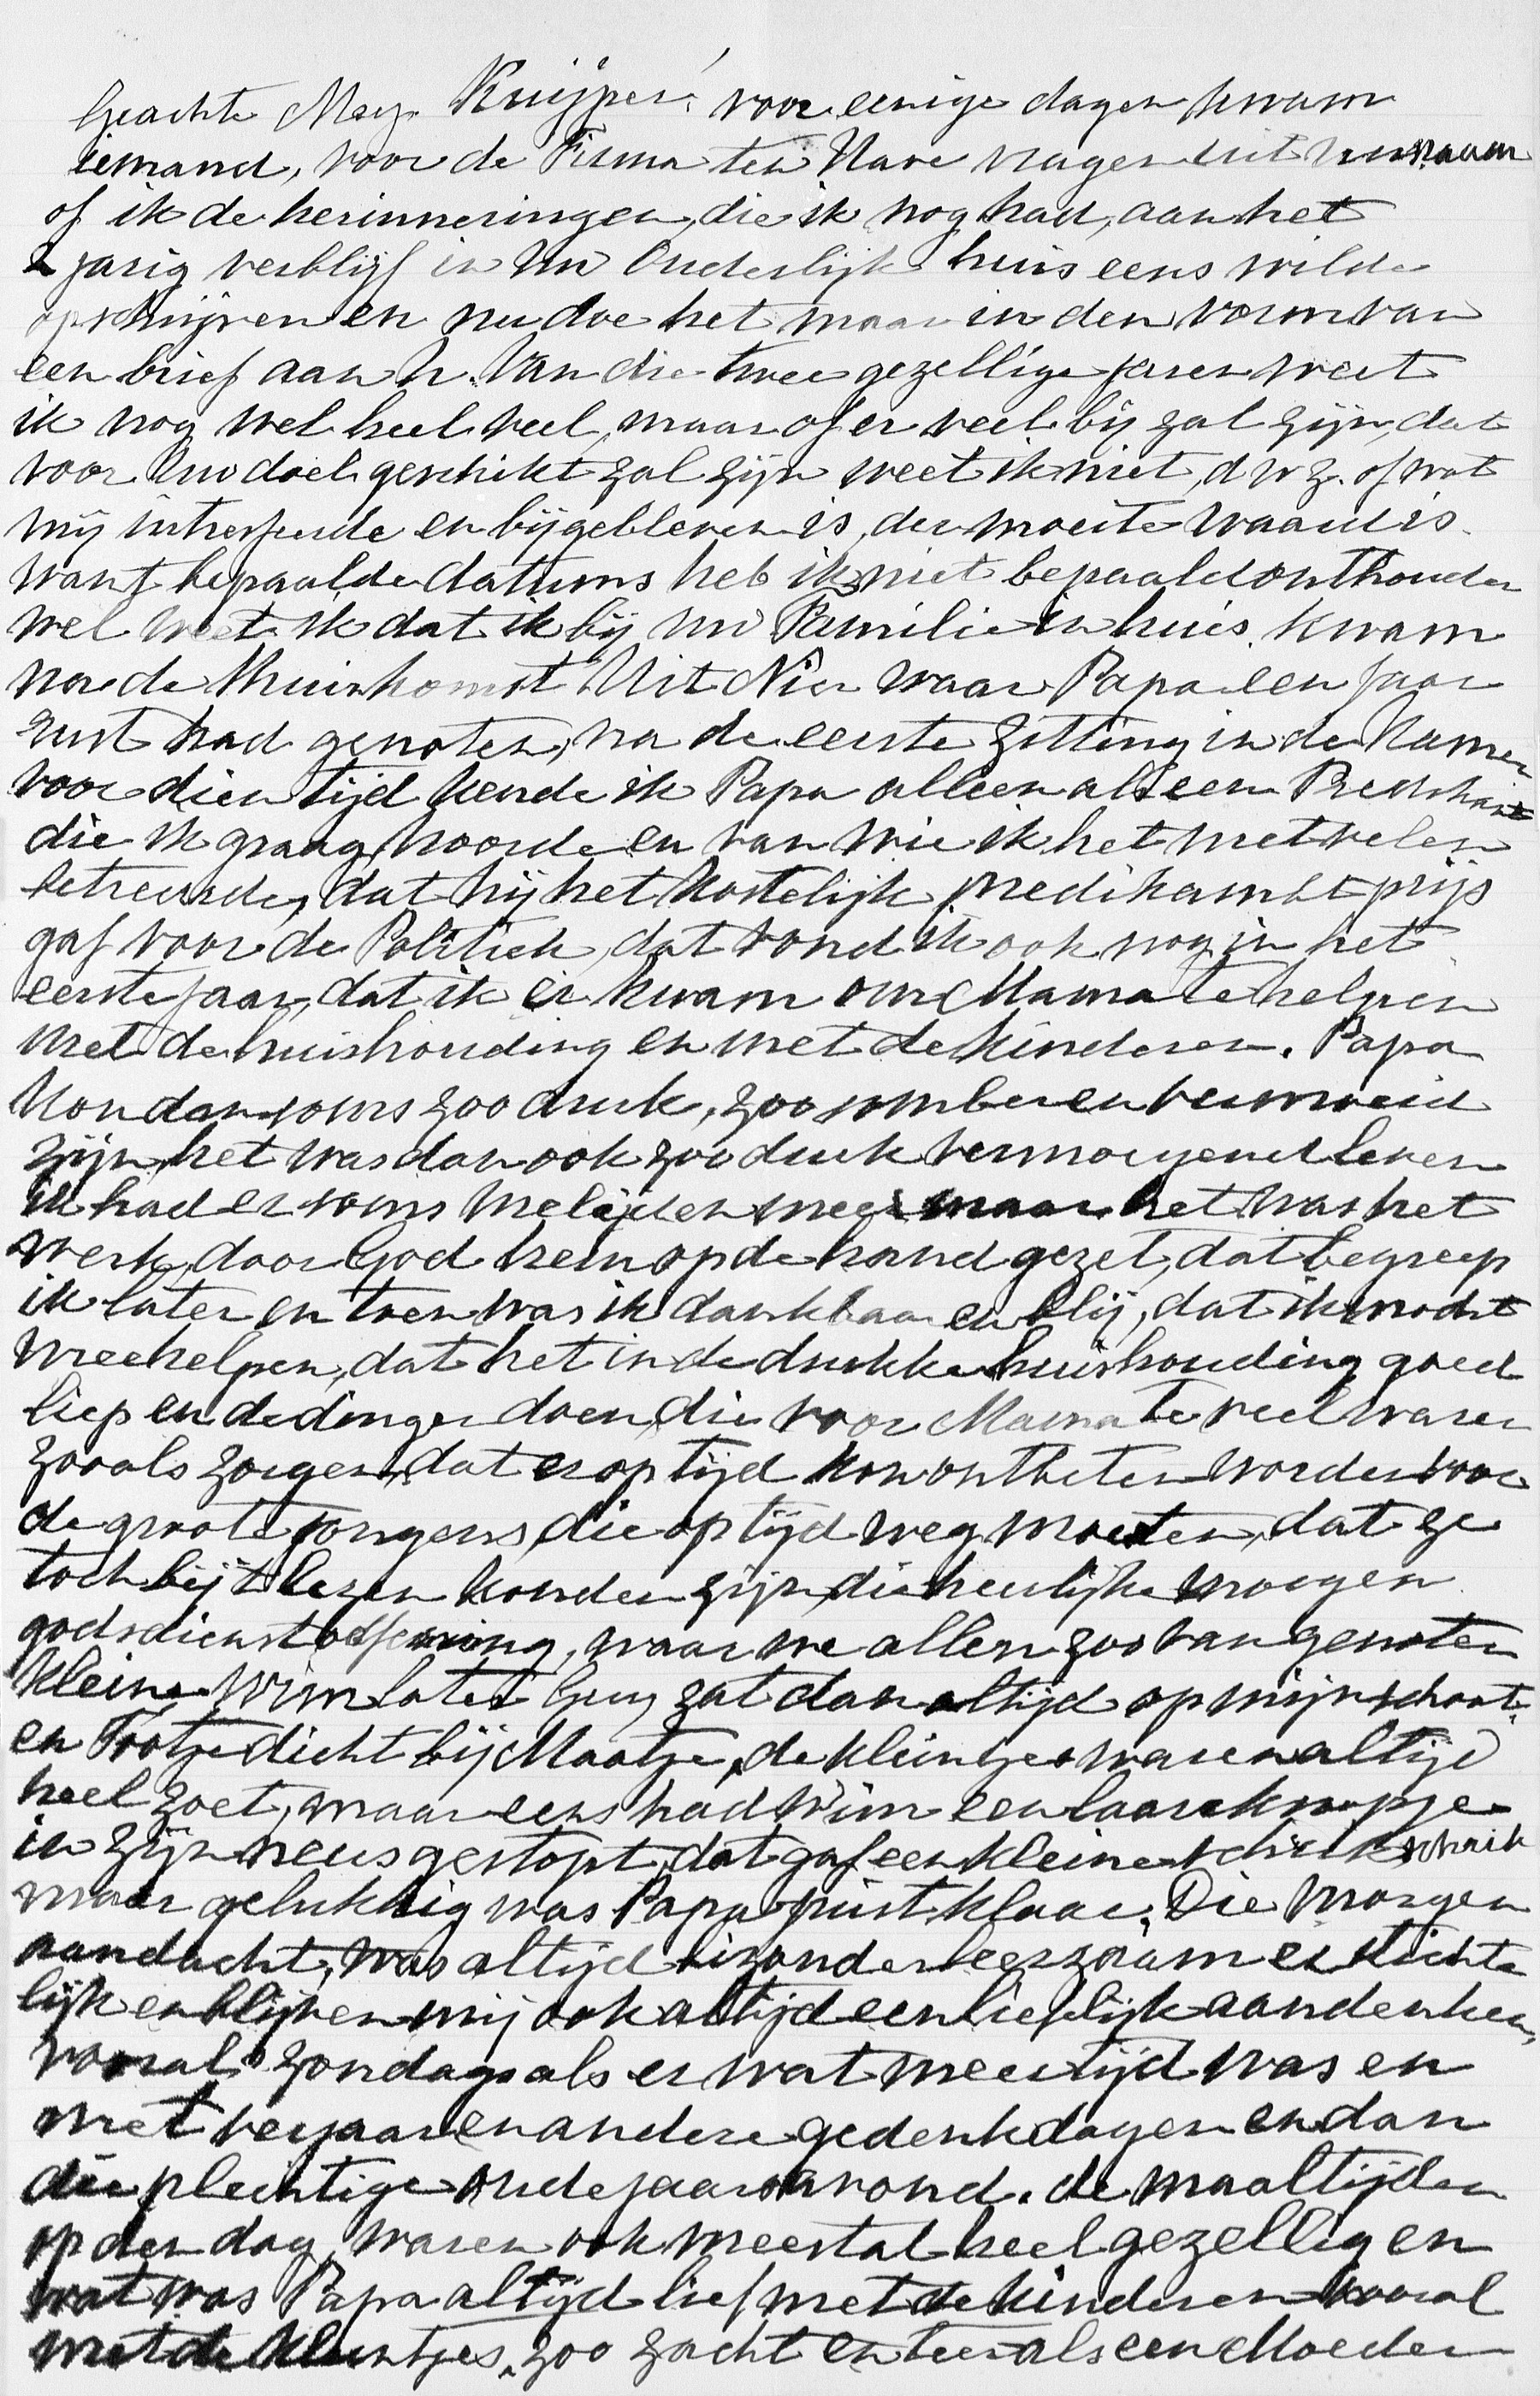 Geachte Mej. Kuijper! voor eenige dagen kwam
iemand, voor de Firma ten Have vragen uit uw naam
of ik de herinneringen, die ik nog had, aan het
2 jarig verblijf in Uw Ouderlijk huis eens wilde
opschrijven en nu doe het maar in den vorm van
een brief aan U. Van die twee gezellige jaren weet
ik nog wel heel veel, maar of er veel bij zal zijn, dat
voor Uw doel geschikt zal zijn weet ik niet, d w z. of wat
mij intresseerde en bijgebleven is, de moeite waard is.
want bepaalde datums heb ik niet bepaald onthouden
wel weet ik dat ik bij uw Familie in huis kwam
na de thuiskomst Uit Nice waar Papa een jaar
rust had genoten, na de eerste zitting in de Kamer
voor dien tijd kende ik Papa alleen als een Predikant
die ik graag hoorde en van wie ik het met velen
betreurde, dat hij het kostelijk predikambt prijs
gaf voor de Politiek, dat vond ik ook nog in het
eerste jaar, dat ik er kwam om Mama te helpen
met de huishouding en met de kinderen. Papa
kon dan soms zoo druk, zoo somber en vermoeid
zijn, het was dan ook zoo druk vermoeyend leven
ik had er soms melijden mee maar het was het
werk, door God hem op de hand gezet, dat begreep
ik later en toen was ik dankbaar en blij, dat ik mocht
meehelpen, dat het in de drukke huishouding goed
liep en de dingen doen, die voor Mama te veel waren
zooals zorgen, dat er op tijd kon ontbeten worden voor
de groote jongens, die op tijd weg moesten, dat ze
toch bij 't lezen konden zijn, die heerlijke morgen
godsdienstoefening, waar we allen zoo van genoten
kleine Wim later Guy zat dan altijd op mijn schoot.
en Tootje dicht bij Maatje, de kleintjes waren altijd
heel zoet, maar eens had Wim een laarsknoopje
in zijn neus gestopt, dat gaf een kleine schrik
maar gelukkig was Papa juist klaar. Die morgen
aandacht, was altijd bizonder leerzaam en stichte
lijk en blijven mij ook altijd een lieflijk aandenken,
vooral zondags als er wat meer tijd was en
met verjaar en andere gedenkdagen en dan
die plechtige oudejaarsavond. de maaltijden
op den dag, waren ook meestal heel gezellig en
wat was Papa altijd lief met de kinderen vooral
met de kleintjes, zoo zacht en teer als een Moeder